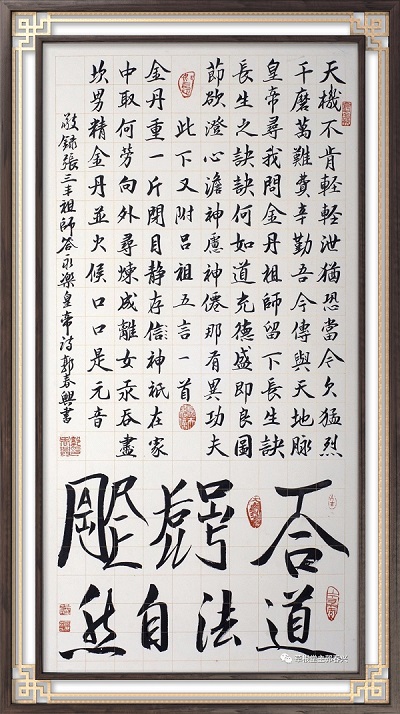 天機不肯軽軽泄猶恐當今欠猛烈
千磨萬難費辛勤吾今傳與天地脉
皇帝尋我問金丹祖師留下長生訣
長生之訣訣何如道充德盛即良圖
節欲澄心澹神慮神僊那有異功夫
此下又附吕祖五言一首
金丹重一斤閉目静存信神祇在家
中取何劳向外尋煉成離女汞吞盡
坎男精金丹並火候口口是元音
敬録張三丰祖師答永樂皇帝詩郭春興書
道法自然
草根堂主郭春兴